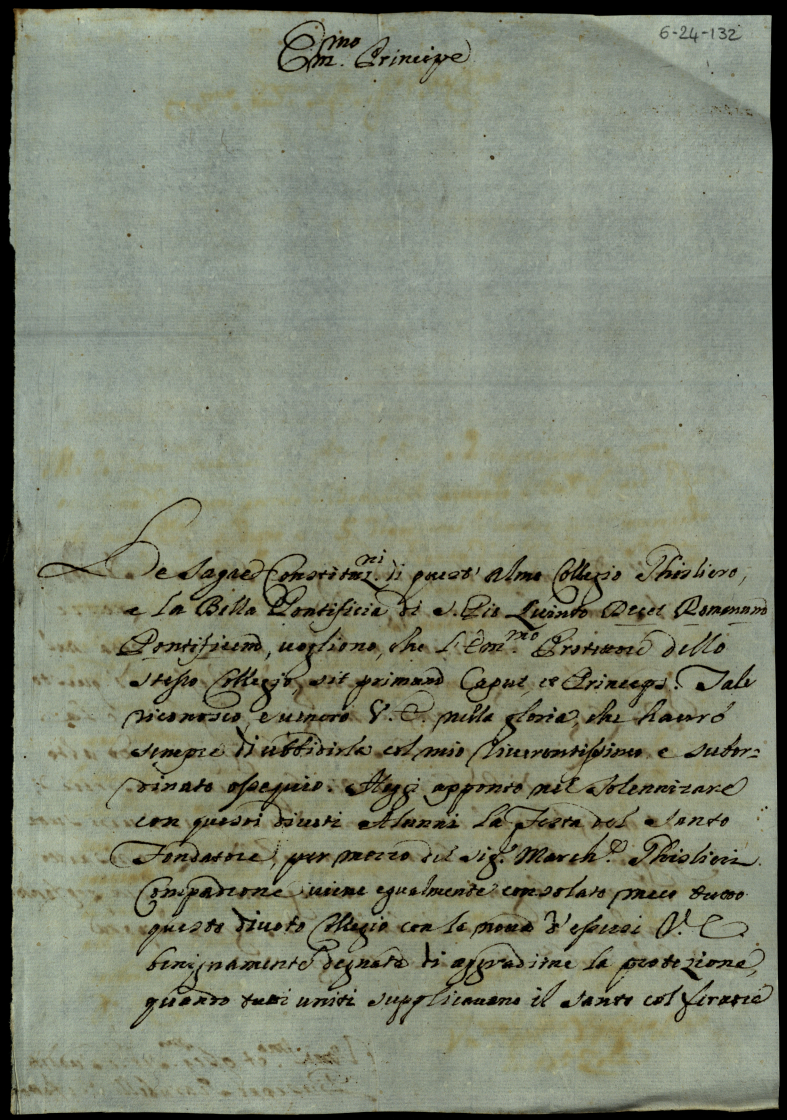 6-24-132
Em.mo Principe
Le Sagre Constitut.ni di quest' almo Collegio Ghisliero,
e la Bolla Pontificia di S. Pio Quinto Decet Romanum
Pontificem, vogliono, che l'Em.mo Protettore dello
stesso Collegio, sit primum Caput, et Princeps. Tale
riconosco, e venero V. E. nella gloria, che havrò
sempre di ubbidirla col mio riverentissimo e subor=
dinato ossequio. Heggi apponto nel solennizare
con questi divoti Alunni la Festa del Santo
Fondatore, per mezzo del Sig.r March.e Ghislieri
Compadrone viene egualmente consolato meco tutto
questo divoto Collegio con la nova d'essersi V. E.
benignamente degnata di aggradirne la protezione,
quando tutti uniti supplicavano il Santo col